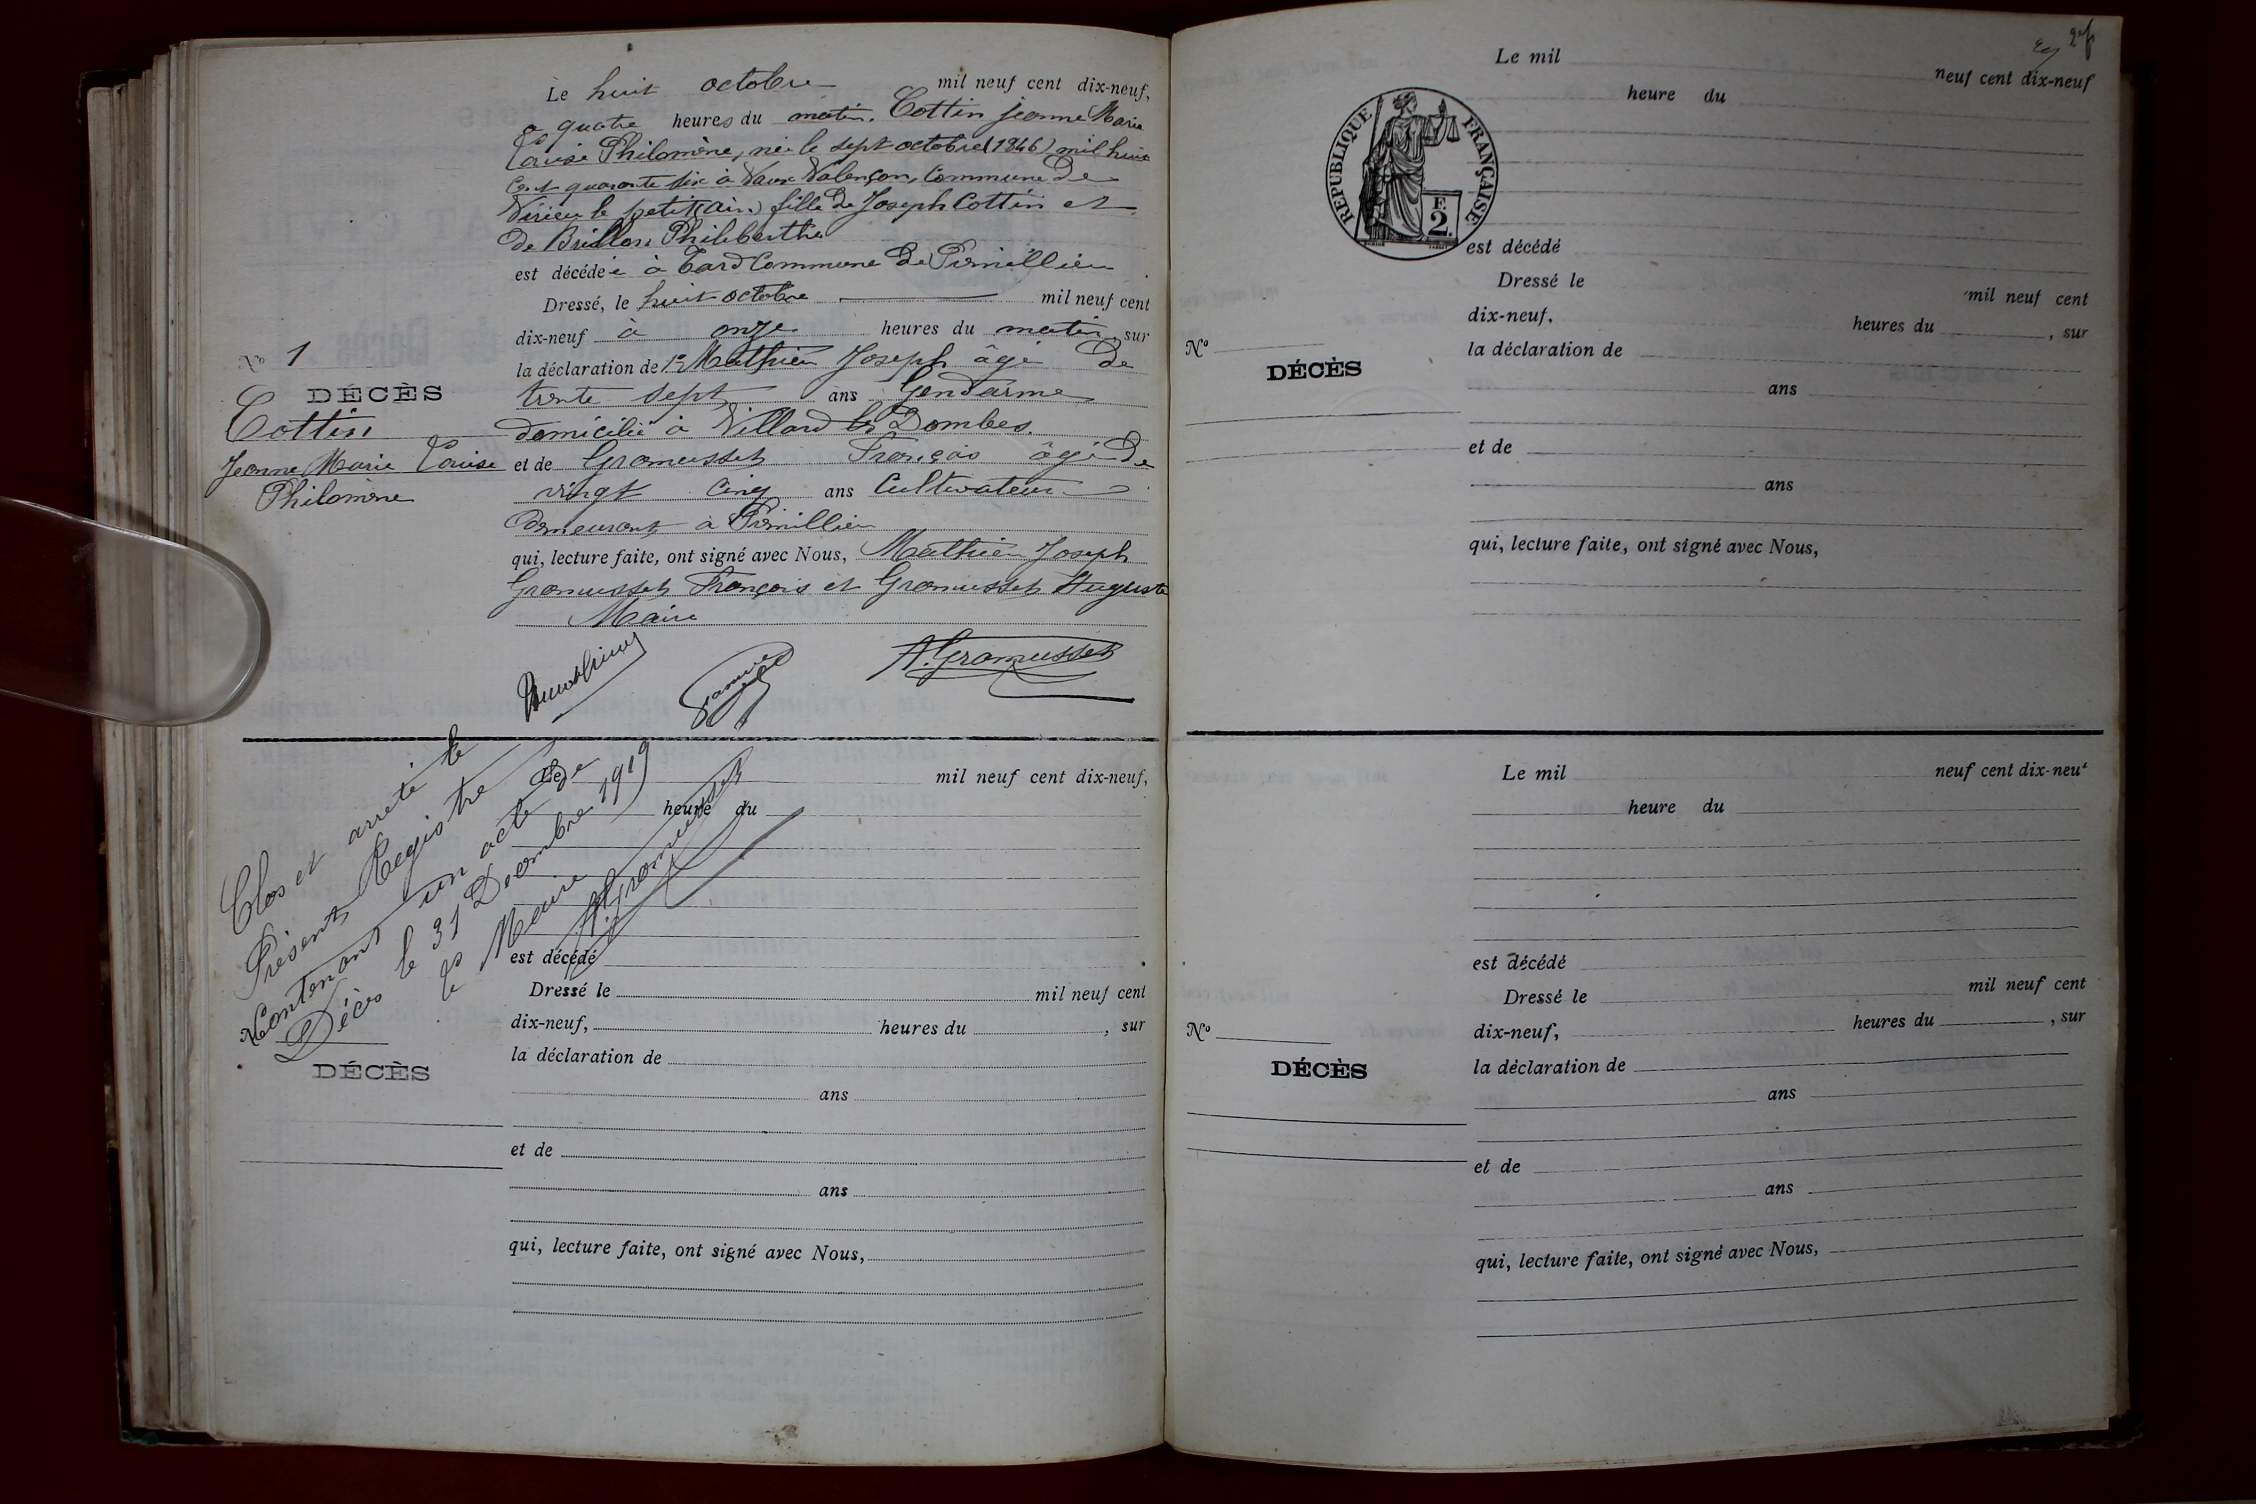 Le huit octobre mil neuf cent dix-neuf,
à quatre heures du matin. Cottin Jeanne Marie
Louise Philomène, née le sept octobre (1846) mil huit
cent quarante six à Vaux Valençon, Commune de
Virieu le petit (Ain.) fille de Joseph Cottin et
de Brillon Philiberthe
est décédée à Tard Commune de Premillieu
Dressé, le huit octobre mil neuf cent
dix-neuf à onze heures du matin, sur
la déclaration de 1° Mathieu Joseph âgé de
trente sept ans Gendarme
domicilié à Villard les Dombes.
et de Gromusset François âgé de
vingt cinq ans Cultivateur
demeurant à Prémillieu
qui, lecture faite, ont signé avec Nous, Mathieu Joseph
Gromusset François et Gromusset Auguste
Maire
A. Gromusset
No 1
DÉCÈS
Cottin
Jeanne Marie Louise
Philomène
Clos et arrêté le
Présent Registre
Contenant un acte de
Décès le 31 Décembre 1919
le Maire
A. Gromusset
Le mil neuf cent dix-neuf,
heure du
est décédé
Dressé le mil neuf cent
dix-neuf, heures du , sur
la déclaration de
ans
et de
ans
qui, lecture faite, ont signé avec Nous,
No
DÉCÈS
2
Le mil neuf cent dix-neuf
heure du
RÉPUBLIQUE FRANÇAISE
F.
2.
est décédé
Dressé le mil neuf cent
dix-neuf, heures du , sur
la déclaration de
ans
et de
ans
qui, lecture faite, ont signé avec Nous,
No
DÉCÈS
Le mil neuf cent dix-neuf
heure du
est décédé
Dressé le mil neuf cent
dix-neuf, heures du , sur
la déclaration de
ans
et de
ans
qui, lecture faite, ont signé avec Nous,
No
DÉCÈS